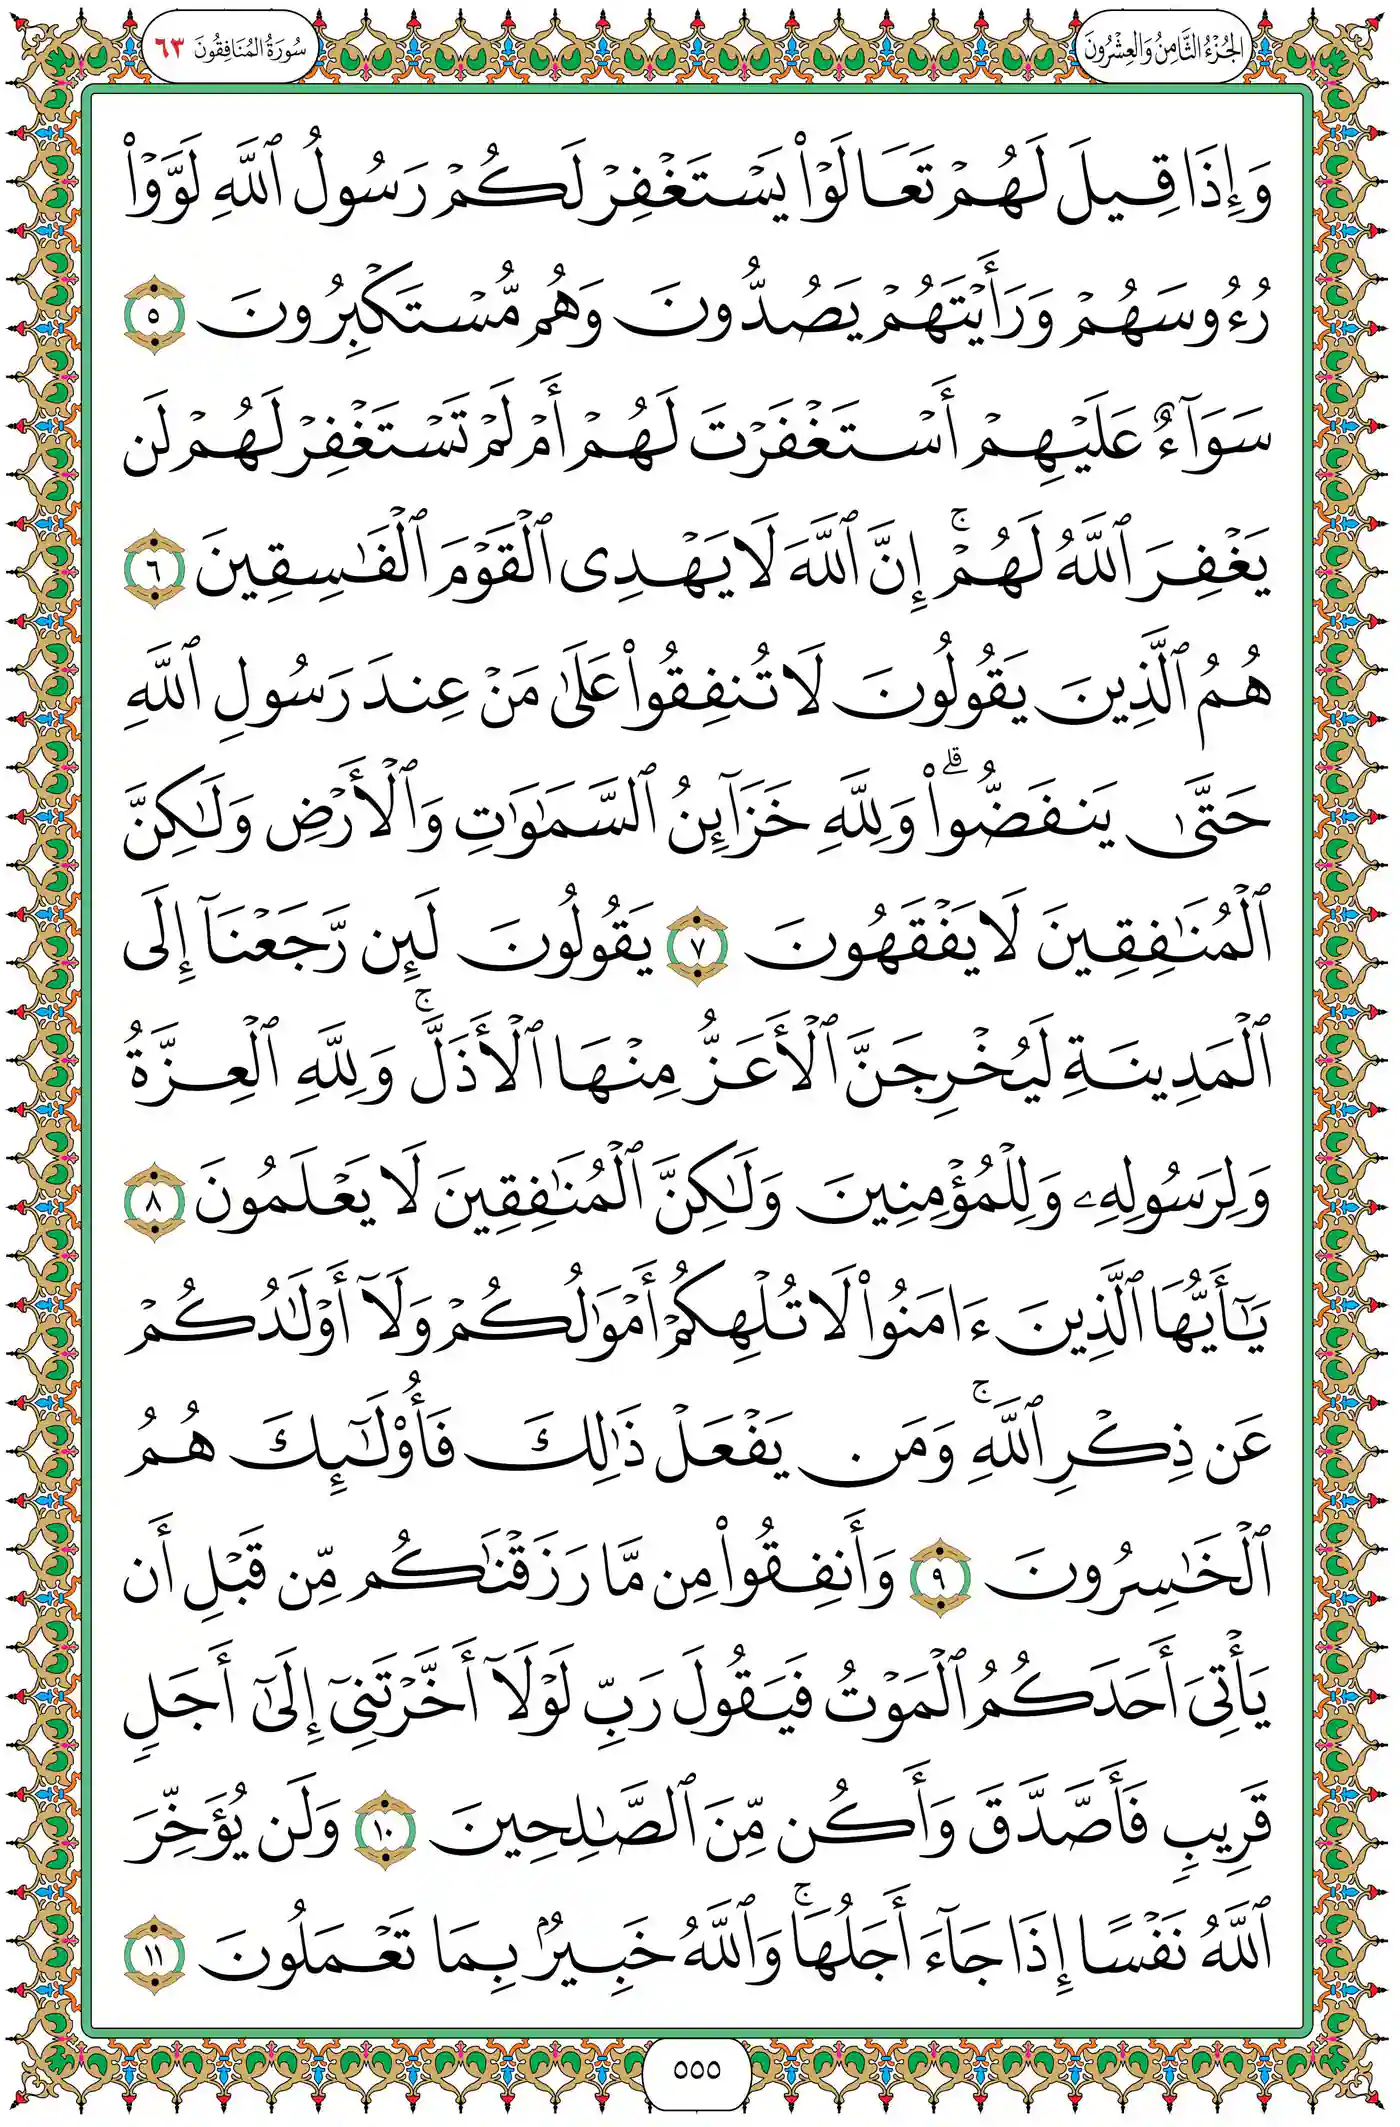 الجُزْءُ الثَّامِنُ وَالعِشْرُونَ
سُورَةُ المُنَافِقُونَ ٦٣
وَإِذَا قِيلَ لَهُمۡ تَعَالَوۡاْ يَسۡتَغۡفِرۡ لَكُمۡ رَسُولُ ٱللَّهِ لَوَّوۡاْ
رُءُوسَهُمۡ وَرَأَيۡتَهُمۡ يَصُدُّونَ وَهُم مُّسۡتَكۡبِرُونَ ٥
سَوَآءٌ عَلَيۡهِمۡ أَسۡتَغۡفَرۡتَ لَهُمۡ أَمۡ لَمۡ تَسۡتَغۡفِرۡ لَهُمۡ لَن
يَغۡفِرَ ٱللَّهُ لَهُمۡۚ إِنَّ ٱللَّهَ لَا يَهۡدِى ٱلۡقَوۡمَ ٱلۡفَٰسِقِينَ ٦
هُمُ ٱلَّذِينَ يَقُولُونَ لَا تُنفِقُواْ عَلَىٰ مَنۡ عِندَ رَسُولِ ٱللَّهِ
حَتَّىٰ يَنفَضُّواْۗ وَلِلَّهِ خَزَآئِنُ ٱلسَّمَٰوَٰتِ وَٱلۡأَرۡضِ وَلَٰكِنَّ
ٱلۡمُنَٰفِقِينَ لَا يَفۡقَهُونَ ٧ يَقُولُونَ لَئِن رَّجَعۡنَآ إِلَى
ٱلۡمَدِينَةِ لَيُخۡرِجَنَّ ٱلۡأَعَزُّ مِنۡهَا ٱلۡأَذَلَّۚ وَلِلَّهِ ٱلۡعِزَّةُ
وَلِرَسُولِهِۦ وَلِلۡمُؤۡمِنِينَ وَلَٰكِنَّ ٱلۡمُنَٰفِقِينَ لَا يَعۡلَمُونَ ٨
يَٰٓأَيُّهَا ٱلَّذِينَ ءَامَنُواْ لَا تُلۡهِكُمۡ أَمۡوَٰلُكُمۡ وَلَآ أَوۡلَٰدُكُمۡ
عَن ذِكۡرِ ٱللَّهِۚ وَمَن يَفۡعَلۡ ذَٰلِكَ فَأُوْلَٰٓئِكَ هُمُ
ٱلۡخَٰسِرُونَ ٩ وَأَنفِقُواْ مِن مَّا رَزَقۡنَٰكُم مِّن قَبۡلِ أَن
يَأۡتِىَ أَحَدَكُمُ ٱلۡمَوۡتُ فَيَقُولَ رَبِّ لَوۡلَآ أَخَّرۡتَنِىٓ إِلَىٰٓ أَجَلٖ
قَرِيبٖ فَأَصَّدَّقَ وَأَكُن مِّنَ ٱلصَّٰلِحِينَ ١٠ وَلَن يُؤَخِّرَ
ٱللَّهُ نَفۡسًا إِذَا جَآءَ أَجَلُهَاۚ وَٱللَّهُ خَبِيرُۢ بِمَا تَعۡمَلُونَ ١١
٥٥٥